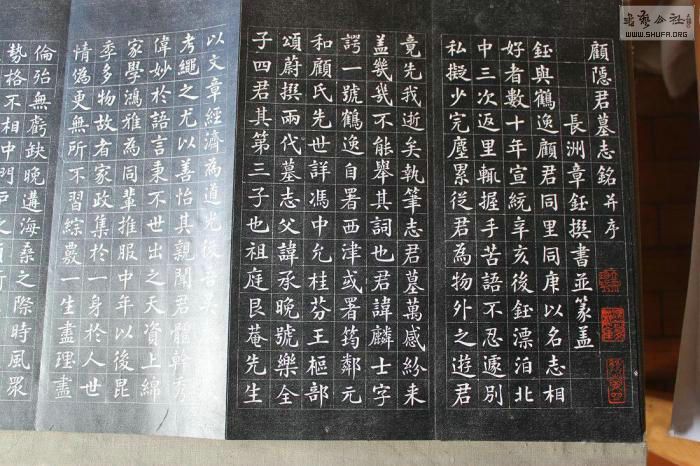 顧隱君墓志銘并序
長洲章鈺撰書並篆蓋
鈺與鶴逸顧君同里同庚以名志相
好者數十年宣統辛亥後鈺漂泊北
中三次返里輒握手苦語不忍遽別
私擬少完塵累從君為物外之遊君
竟先我逝矣執筆志君墓萬感紛來
蓋幾幾不能舉其詞也君諱麟士字
諤一號鶴逸自署西津或署筠鄰元
和顧氏先世詳馮中允桂芬王樞部
頌蔚撰兩代墓志父諱承晚號樂全
子四君其第三子也祖庭艮菴先生
以文章經濟為道光後
考繩之尤以善怡其親聞君幹
偉妙於語言秉不世出之天資上綿
家學鴻雅為同輩推服中年以後昆
季多物故者家政集於一身於人世
情偽更無所不習綜覈一生盡理盡
倫殆無虧缺晚遘海桑之際時風眾
勢格不相中門
WWW.SHUFA.ORG